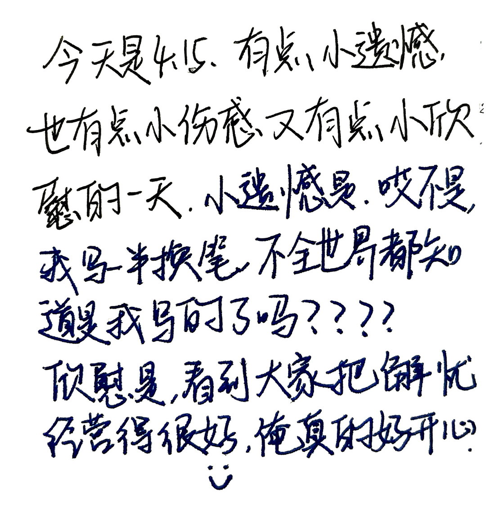 今天是4.15. 有点小遗憾,
也有点小伤感又有点小欣
慰的一天. 小遗憾是. 哎不是,
我写一半换笔, 不全世界都知
道是我写的了吗????
欣慰是, 看到大家把解忧
经营得很好, 俺真的好开心.